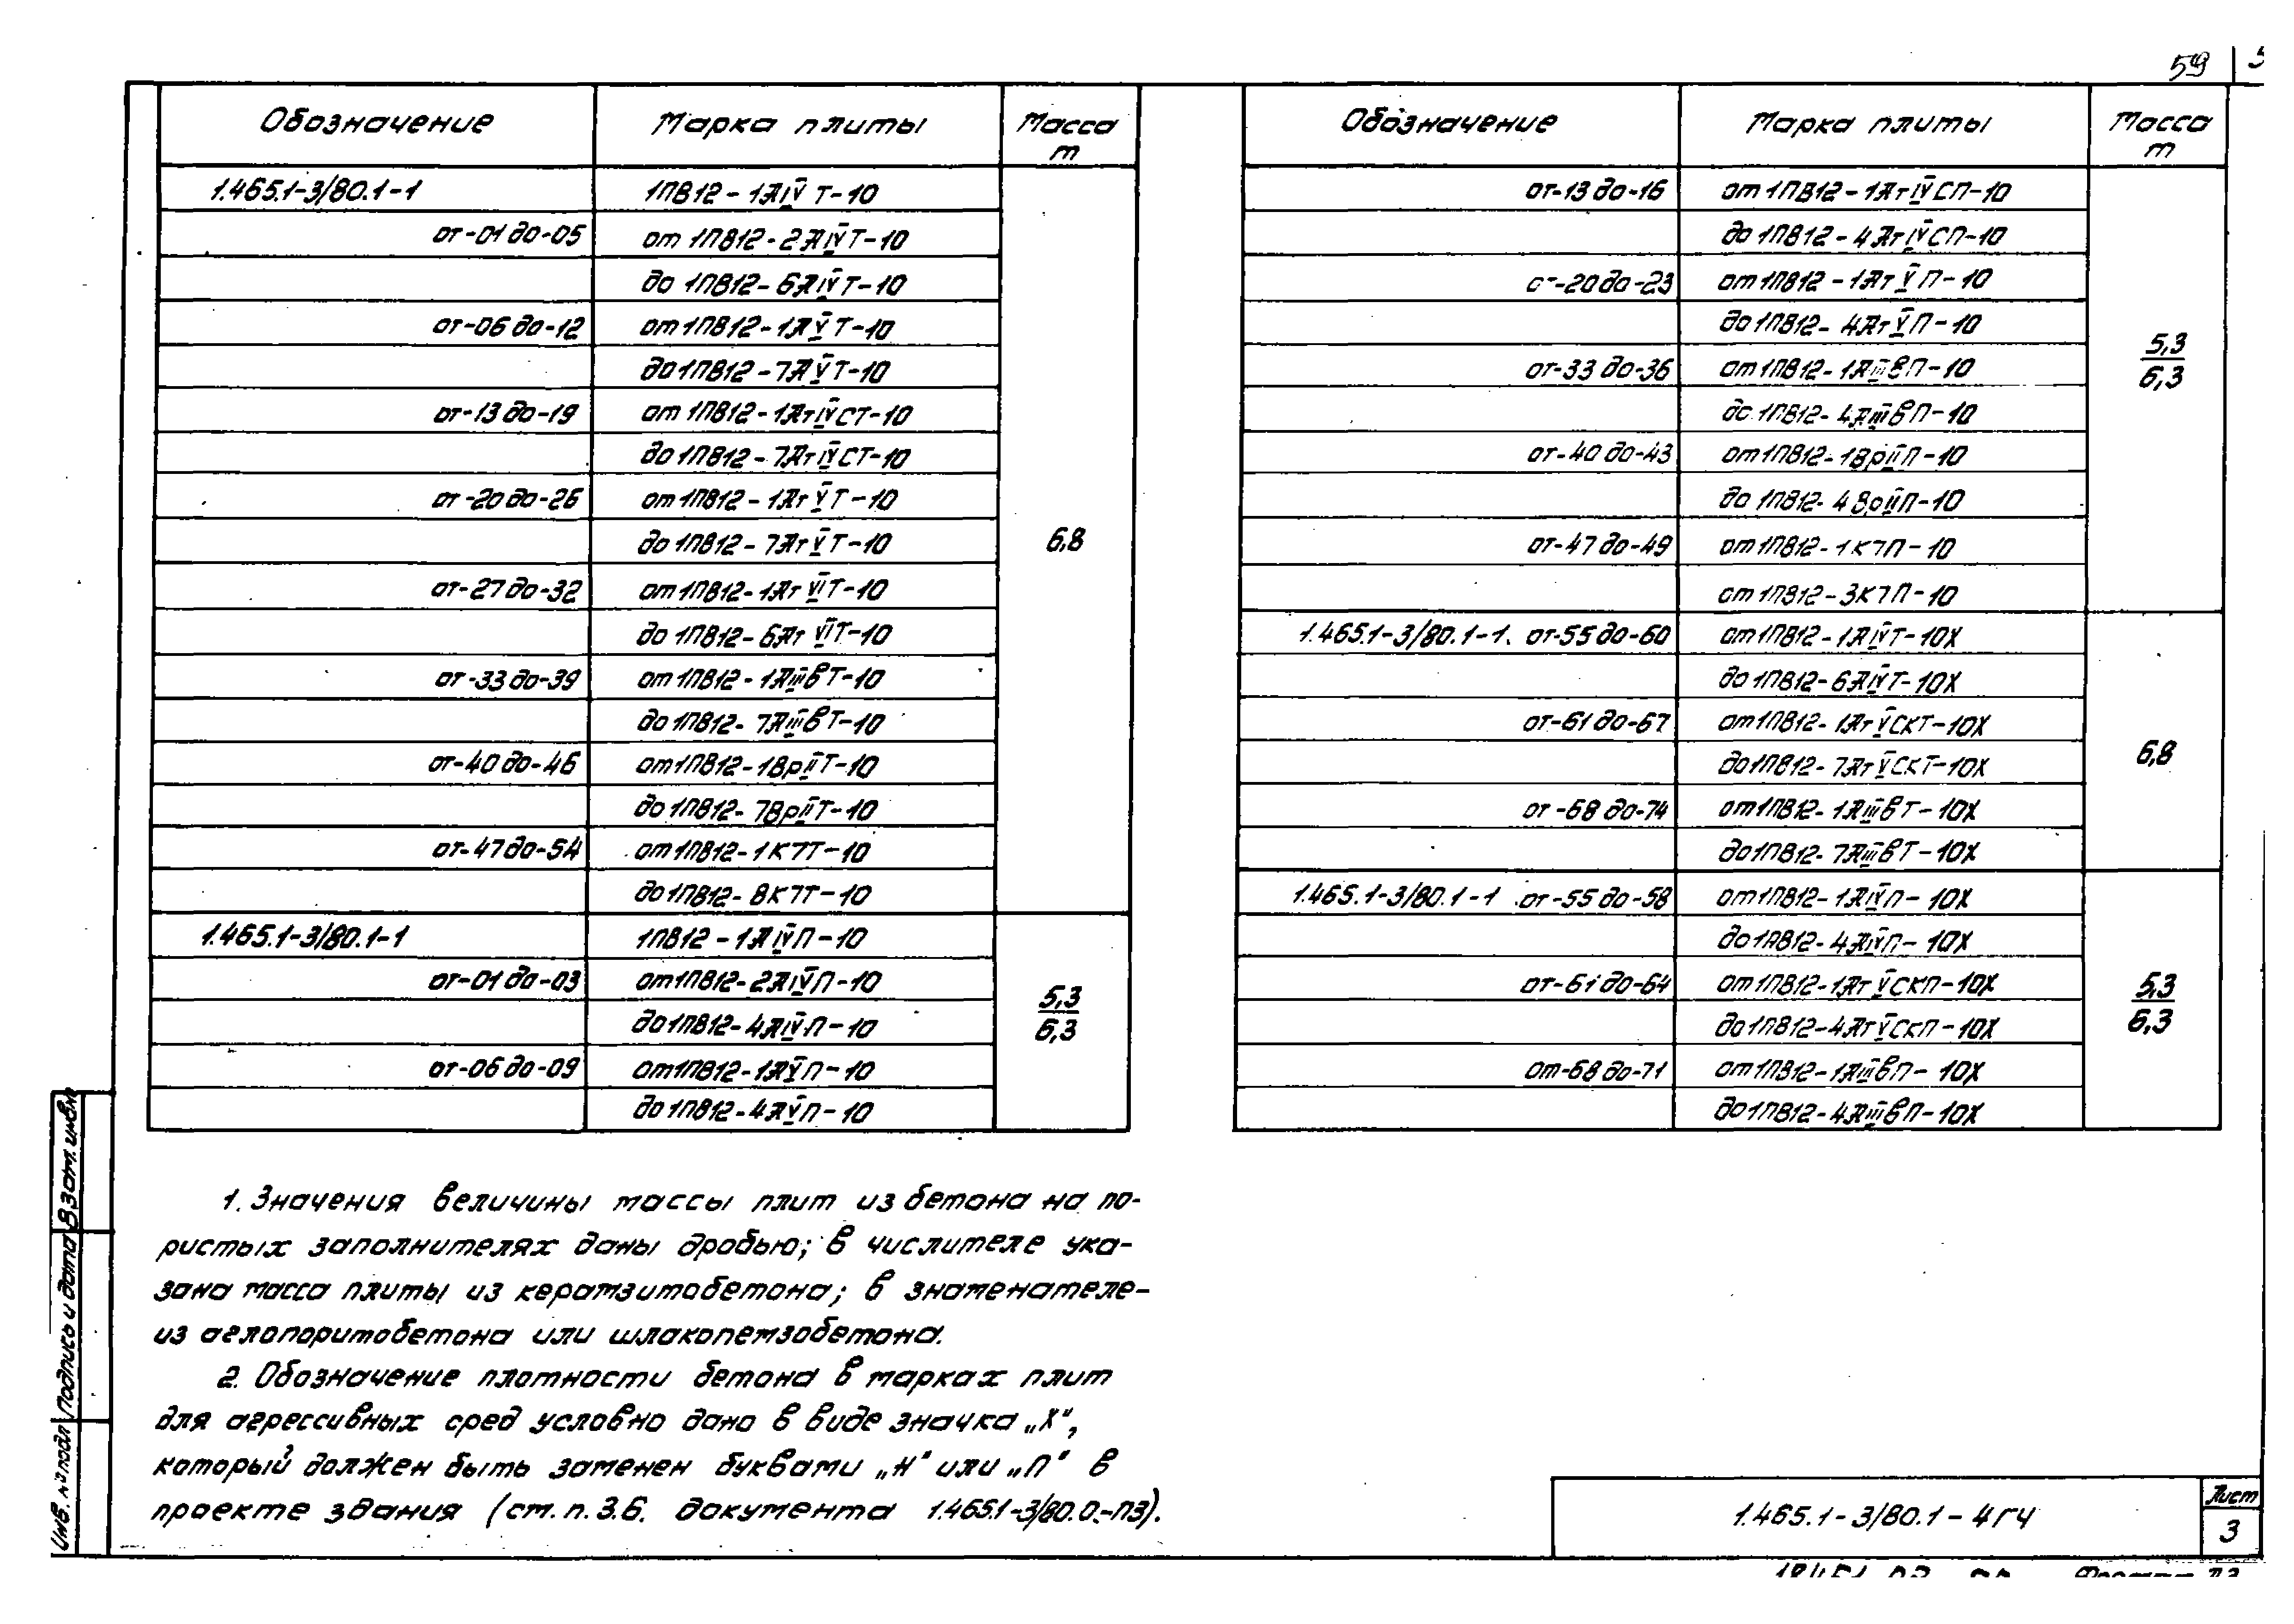 59
Обозначение Марка плиты Масса т
1.465.1-3/80.1-1 1ПВ12-1АIVТ-10
от-01 до-05 от 1ПВ12-2АIVТ-10
до 1ПВ12-6АIVТ-10
от-06 до-12 от 1ПВ12-1АVТ-10
до 1ПВ12-7АVТ-10
от-13 до-19 от 1ПВ12-1АтIVСТ-10
до 1ПВ12-7АтIVСТ-10
от-20 до-26 от 1ПВ12-1АтVТ-10
до 1ПВ12-7АтVТ-10
6,8
от-27 до-32 от 1ПВ12-1АтVIТ-10
до 1ПВ12-6АтVIТ-10
от-33 до-39 от 1ПВ12-1АIIIвТ-10
до 1ПВ12-7АIIIвТ-10
от-40 до-46 от 1ПВ12-1ВрIIТ-10
до 1ПВ12-7ВрIIТ-10
от-47 до-54 от 1ПВ12-1К7Т-10
до 1ПВ12-8К7Т-10
1.465.1-3/80.1-1 1ПВ12-1АIVП-10
от-01 до-03 от 1ПВ12-2АIVП-10
до 1ПВ12-4АIVП-10
5,3
6,3
от-06 до-09 от 1ПВ12-1АVП-10
до 1ПВ12-4АVП-10
Обозначение Марка плиты Масса т
от-13 до-16 от 1ПВ12-1АтIVСП-10
до 1ПВ12-4АтIVСП-10
от-20 до-23 от 1ПВ12-1АтVП-10
до 1ПВ12-4АтVП-10
5,3
6,3
от-33 до-36 от 1ПВ12-1АIIIвП-10
до 1ПВ12-4АIIIвП-10
от-40 до-43 от 1ПВ12-1ВрIIП-10
до 1ПВ12-4ВрIIП-10
от-47 до-49 от 1ПВ12-1К7П-10
от 1ПВ12-3К7П-10
1.465.1-3/80.1-1. от-55 до-60 от 1ПВ12-1АIVТ-10Х
до 1ПВ12-6АIVТ-10Х
от-61 до-67 от 1ПВ12-1АтVСКТ-10Х
до 1ПВ12-7АтVСКТ-10Х
6,8
от-68 до-74 от 1ПВ12-1АIIIвТ-10Х
до 1ПВ12-7АIIIвТ-10Х
1.465.1-3/80.1-1 от-55 до-58 от 1ПВ12-1АIVП-10Х
до 1ПВ12-4АIVП-10Х
от-61 до-64 от 1ПВ12-1АтVСКП-10Х
до 1ПВ12-4АтVСКП-10Х
5,3
6,3
от-68 до-71 от 1ПВ12-1АIIIвП-10Х
до 1ПВ12-4АIIIвП-10Х
1. Значения величины массы плит из бетона на по-
ристых заполнителях даны дробью; в числителе ука-
зана масса плиты из керамзитобетона; в знаменателе-
из аглопоритобетона или шлакопемзобетона.
2. Обозначение плотности бетона в марках плит
для агрессивных сред условно дано в виде значка „Х“,
который должен быть заменен буквами „Н“ или „П“ в
проекте здания (см. п. 3.6. документа 1.465.1-3/80.0.-ПЗ).
Инв. № подл. Подпись и дата Взам. инв №
1.465.1-3/80.1-4ГЧ
Лист
3